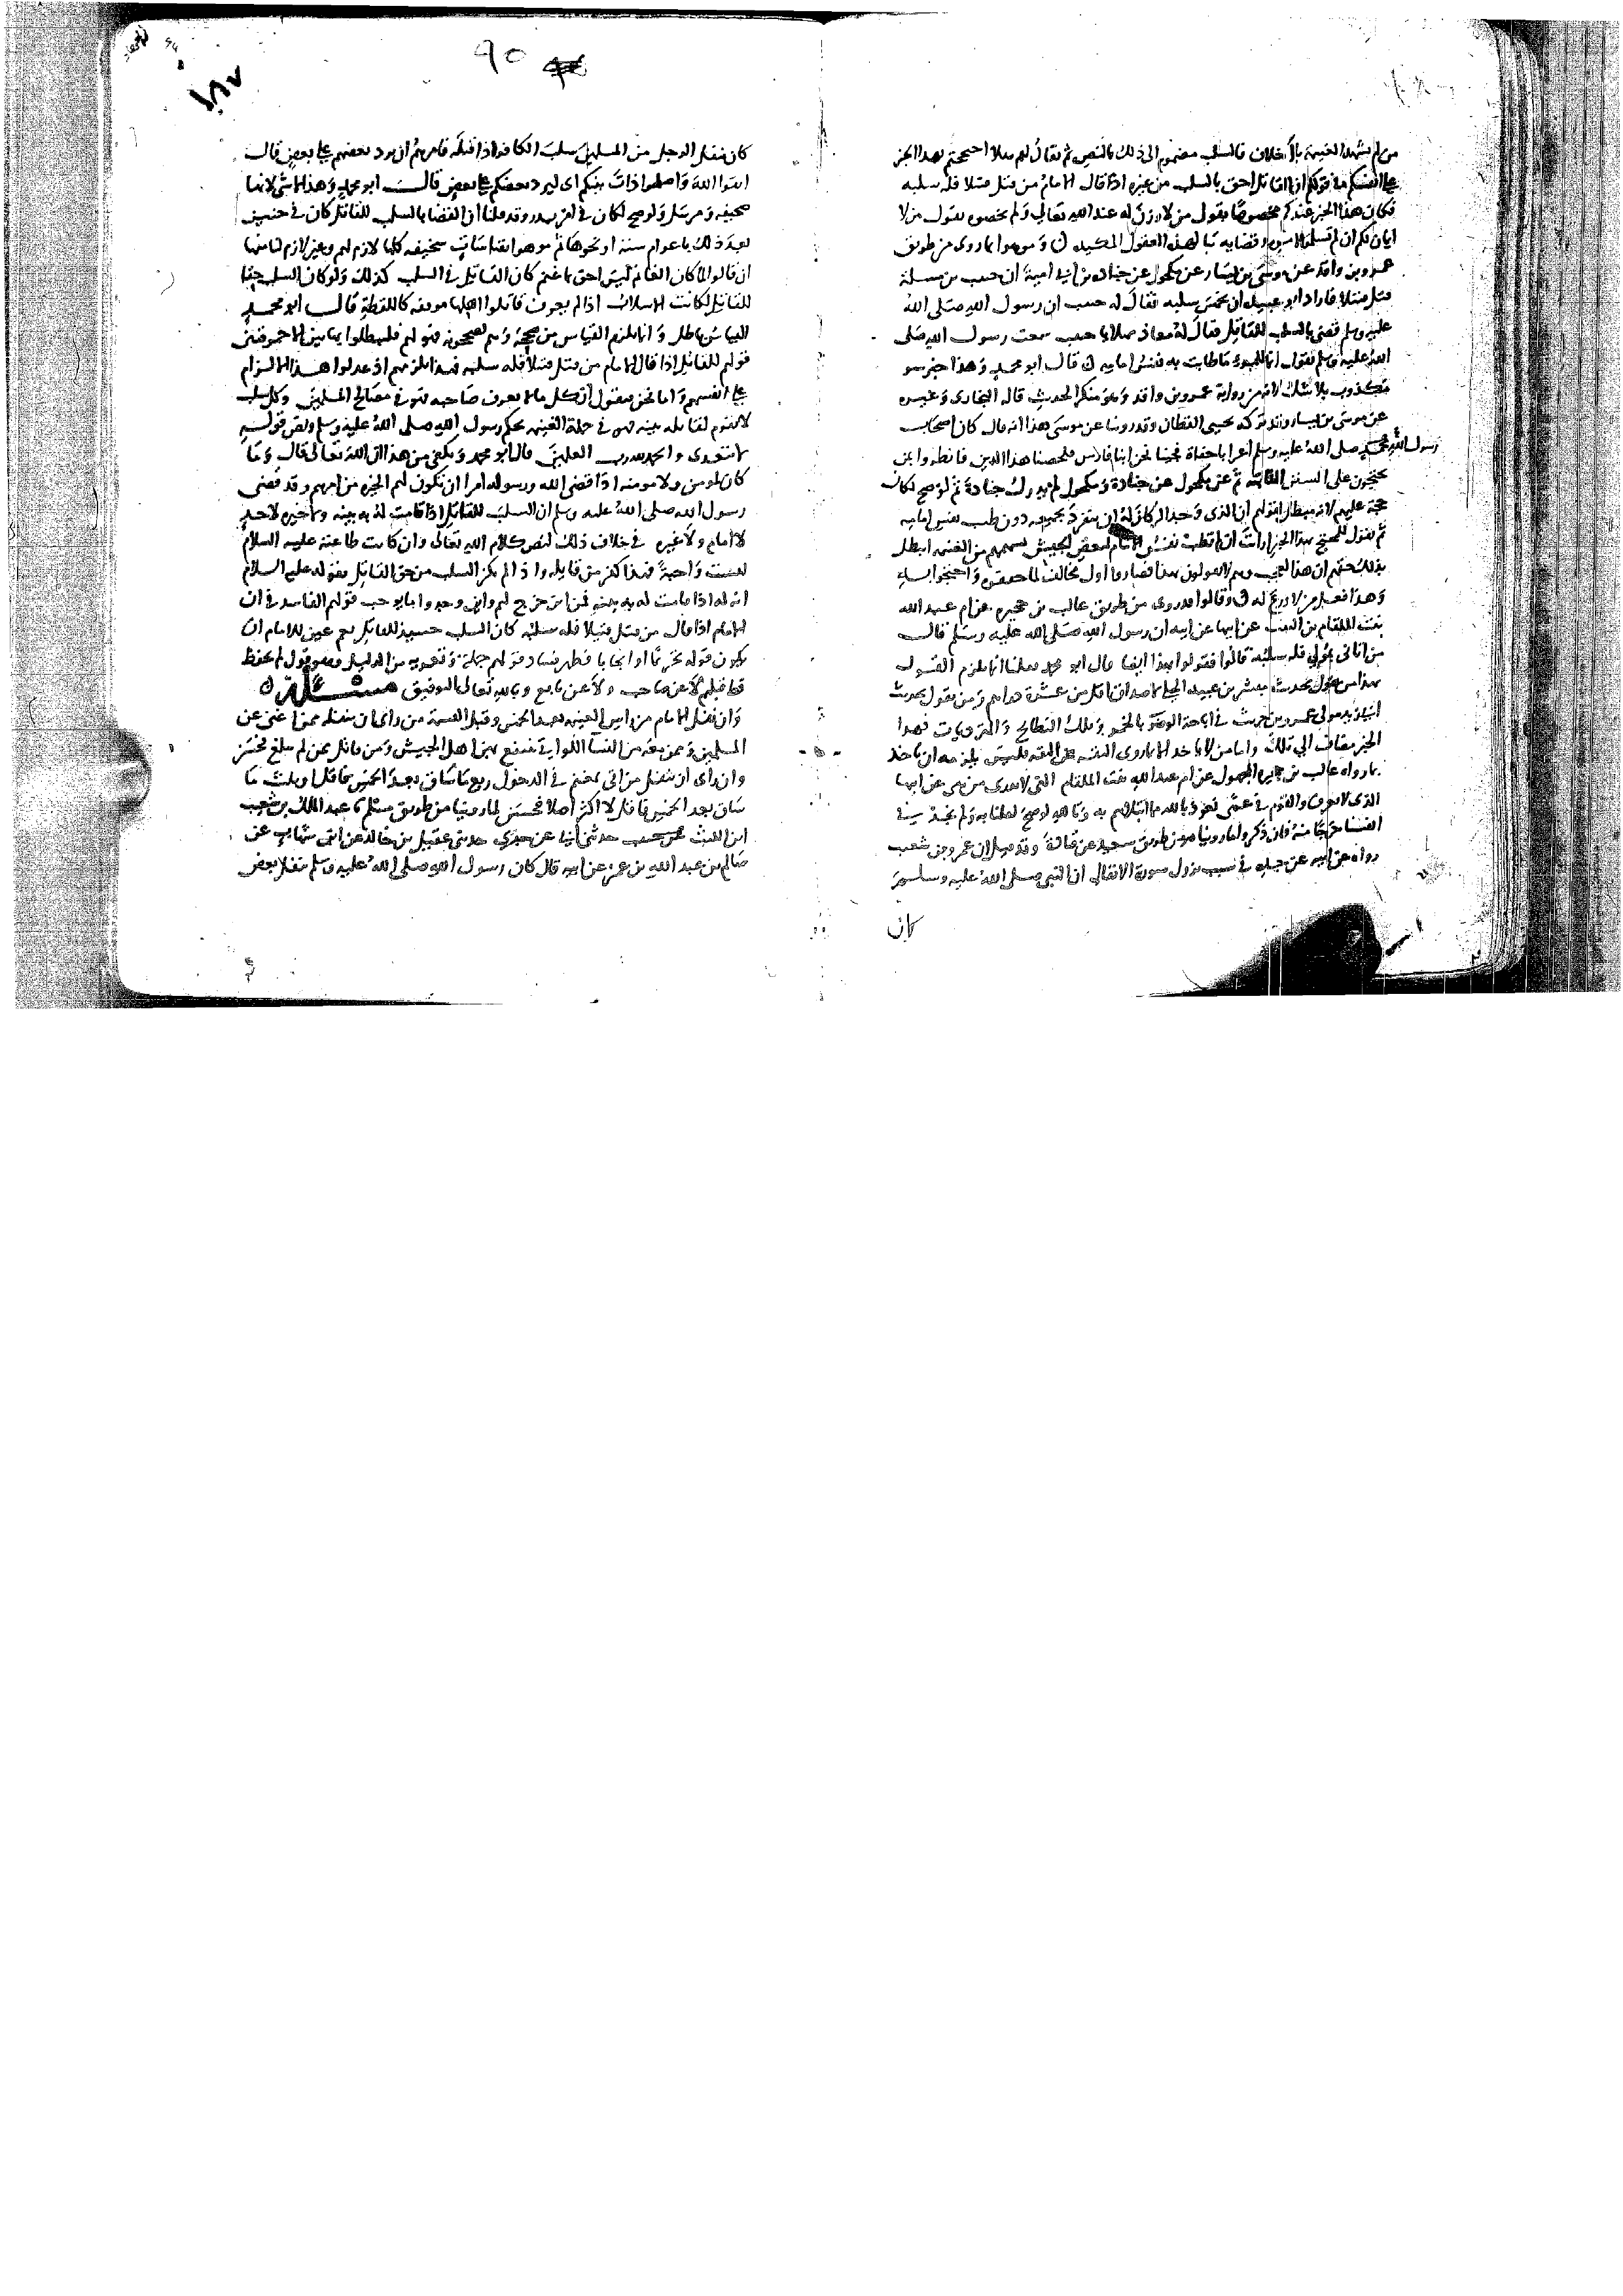 من لم يشهد الغنيمة بلا خلاف فالسلب مضموم الى ذلك بالنص ثم يقال لهم هلا احتججتم بهذا الخبر
على انفسكم في قولكم ان القاتل احق بالسلب من غيره اذا قال الامام من قتل قتيلا فله سلبه
فكان هذا الخبر عندكم مخصوصا بقول من لا وزن له عند الله تعالى ولم تخصوه بقول من لا
ايمان لكم ان لم تسلموا لامره وقضايه تبا لهذه العقول المكيدة وموهوا بما روى من طريق
عمرو بن واقد عن موسى بن يسار عن مكحول عن جنادة بن ابي امية ان حبيب بن مسلمة
قتل قتيلا فاراد ابو عبيدة ان يخمس سلبه فقال له حبيب ان رسول الله صلى الله
عليه وسلم قضى بالسلب للقاتل فقال له معاذ مهلا يا حبيب سمعت رسول الله صلى
الله عليه وسلم يقول انما للمرء ما طابت به نفس امامه قال ابو محمد وهذا خبر سوء
مكذوب بلا شك لانه من رواية عمرو بن واقد وهو منكر الحديث قاله البخاري وغيره
عن موسى بن يسار وقد تركه يحيى القطان وقد روينا عن موسى هذا انه قال كان اصحاب
رسول الله محمد صلى الله عليه وسلم اعرابا حفاة فجينا نحن ابنا فارس فلخصنا هذا الدين فانظروا بمن
يحتجون على السنن الثابتة ثم عن مكحول عن جنادة ومكحول لم يدرك جنادة ثم لو صح لكان
حجة عليهم لانه مبطل لقولهم ان الذي وجد الركاز له ان ينفرد بجميعه دون طيب نفس امامه
ثم نقول للمحتج بهذا الخبر ارايت ان لم تطب نفس الامام لبعض الجيش بسهمهم من الغنيمة ايبطل
بذلك حقهم ان هذا لعجب وهم لا يقولون بهذا فصاروا اول مخالف لما حققوه واحتجوا به
وهذا فعل من لا ورع له وقالوا قد روى من طريق غالب بن حجرة عن ام عبد الله
بنت الملقام بن التلب عن ابيها عن ابيه ان رسول الله صلى الله عليه وسلم قال
من اتانى بمول فله سلبه قالوا فقولوا بهذا ايضا قال ابو محمد
بهذا من يقول بحديث مبشر بن عبيد الحلبي لا صداق اقل من عشرة دراهم ومن يقول بحديث
ابي زيد مولى عمرو بن حريث في اباحة الوضوء بالخمر وتلك النطايح والمترديات فهذا
الخبر مضاف الى تلك واما من لا ياخذ الا بما روى الثقة عن الثقة فليس يلزمه ان ياخذ
بما رواه غالب بن حجرة المجهول عن ام عبد الله بنت الملقام التي لا يدرى من هي عن ابيها
الذي لا يعرف والقوم في عمى نعوذ بالله مما ابتلاهم به وتالله لو صح لقلنا به ولم نجد في
انفسنا حرجا منه فان ذكروا ما روينا من طريق سعيد عن قتادة وقد قيل ان عمرو بن شعيب
رواه عن ابيه عن جده في سبب نزول سورة الانفال ان النبي صلى الله عليه وسلم
كان
٩٥
١٨٧
كان ينفل الرجل من المسلمين سلب الكافر اذا قتله فامرهم ان يرد بعضهم على بعض قال
اتقوا الله واصلحوا ذات بينكم اي ليرد بعضكم على بعض قال ابو محمد وهذا لا شى لانها
صحيفة ومرسل ولو صح لكان في امر بدر وقد قلنا ان القضا بالسلب للقاتل كان في حنين
بعد ذلك باعوام ستة او نحوها ثم موهوا بقياسات سخيفة كلها لازم لهم وغير لازم لنا منها
ان قالوا لما كان الغانم ليس احق بما غنم كان القاتل في السلب كذلك ولو كان السلب حقا
للقاتل لكانت الاسلاب اذا لم يعرف قاتلوا اهلها موقفة كاللقطة قال ابو محمد
القياس باطل وانما يلزم القياس من صححه وهم يصححونه فهو لهم فليبطلوا بهاتين الاحموقتين
قولهم للقاتل اذا قال الامام من قتل قتيلا فله سلبه فهذا يلزمهم اذ عدلوا هذا الالزام
على انفسهم واما نحن فنقول ان كل مال لا يعرف صاحبه فهو في مصالح المسلمين وكل سلب
لا تقوم لقاتله بينه فهو في جملة الغنيمة بحكم رسول الله صلى الله عليه وسلم ونص قوليه
لا نتعدى والحمد لله رب العلمين قال ابو محمد ويكفي من هذا ان الله تعالى قال وما
كان لمومن ولا مومنة اذا قضى الله ورسوله امرا ان تكون لهم الخيرة من امرهم وقد قضى
رسول الله صلى الله عليه وسلم ان السلب للقاتل اذا قامت له به بينه ولا خيرة لاحد
لا امام ولا غيره في خلاف ذلك لنص كلام الله تعالى وان كانت طاعته عليه السلام
ليست واجبة فهذا كفر من قايله واذ لم يكن السلب من حق القاتل بقوله عليه السلام
انه له اذا قامت له به بينه فمن اين خرج لهم واين وجدوا ما يوجب قولهم الفاسد في ان
الامام اذا قال من قتل قتيلا فله سلبه كان السلب حينيذ للقاتل نعم عين للامام ان
يكون قوله تحريما او ايجابا فظهر فساد قولهم جملة وتعريه من الدليل وهو قول لم يحفظ
قط قبلهم لا عن صاحب ولا عن تابع وبالله تعالى التوفيق مسئلة
وان نفل الامام من راس الغنيمة بعد الخمس وقبل القسمة من راى ان ينفله ممن اغنى عن
المسلمين وعمن معه من النسآ اللواتي ينتفع بهن اهل الجيش ومن قاتل ممن لم يبلغ فحسن
وان راى ان ينفل من اتى بمغنم في الدخول ربع ما ساق بعد الخمس فاقل او ثلث ما
ساق بعد الخمس فاقل لا اكثر اصلا فحسن لما روينا من طريق مسلم نا عبد الملك بن شعيب
ابن الليث حدثني ابي عن جدي حدثني عقيل بن خالد عن ابن شهاب عن
سالم بن عبد الله بن عمر عن ابيه قال كان رسول الله صلى الله عليه وسلم ينفل بعض